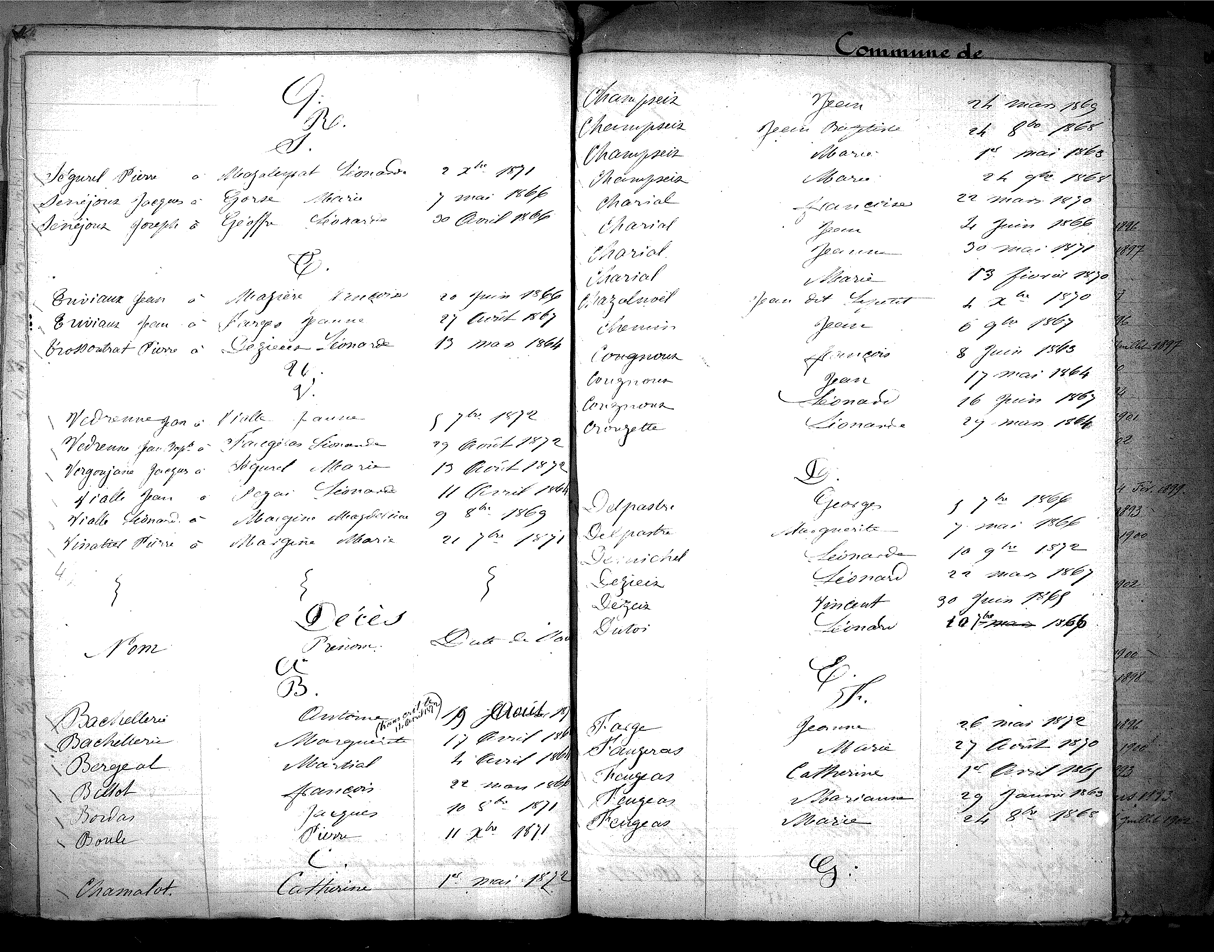 Q.
R.
S.
Ségurel Pierre à Mazaleyrat Léonarde 2 Xbre 1871
Senéjoux Jacques à Gorse Marie 7 mai 1866
Senéjoux Joseph à Geoffre Léonarde 30 Avril 1866
T.
Enviaux Jean à Mazière Françoise 20 Juin 1866
Enviaux Jean à Farges Jeanne 27 Août 1867
Trossontrat Pierre à Dezieux Léonarde 13 mars 1864
U.
V.
Vedrenne Jean à Vialle Jeanne 5 7bre 1872
Vedrenne Jean Bapt. à Léonarde 29 Août 1872
Vergoujane Jacques à Ségurel Marie 13 Août 1872
Vialle Jean à Léonarde 11 Avril 1864
Vialle Léonard à Margine Magdeleine 9 8bre 1869
Vinatier Pierre à Margine Marie 21 7bre 1871
Décès
Nom Prénom Date de
A
B.
Bachellerie Antoine 19 Août
Bachellerie Marguerite 17 Avril
Bergeal Martial 4 Avril 1864
Billot François 22 mars
Bordas Jacques 10 8bre 1871
Boule Pierre 11 Xbre 1871
C.
Chamalot. Catherine 1er mai 1872
Commune de
Champseix Jean 24 mars 1869
Champseix Jean Baptiste 24 8bre 1868
Champseix Marie 1er mai 1863
Champseix Marie 24 9bre 1868
Charial Françoise 22 mars 1870
Charial Jean 4 Juin 1866
Charial Jeanne 30 mai 1871
Charial Marie 13 février 1870
Chazalnoël Jean dit Lepetit 4 Xbre 1870
Chemin Jean 6 9bre 1867
Cougnoux François 8 Juin 1863
Cougnoux Jean 17 mai 1864
Cougnoux Léonard 16 Juin 1867
Crouzette Léonarde 27 mars 1864
D.
Delpastre Georges 5 7bre 1866
Delpastre Marguerite 7 mai 1866
Demichel Léonarde 10 9bre 1872
Dezieix Léonard 22 mars 1867
Dezeix Vincent 30 Juin 1865
Dutoi Léonard 10 7bre 1866
E.
F.
Farge Jeanne 26 mai 1872
Faugeras Marie 27 Août 1870
Feugeas Catherine 1er Avril 1865
Feugeas Marianne 29 Janvier 1863
Feugeas Marie 24 8bre 1868
G.